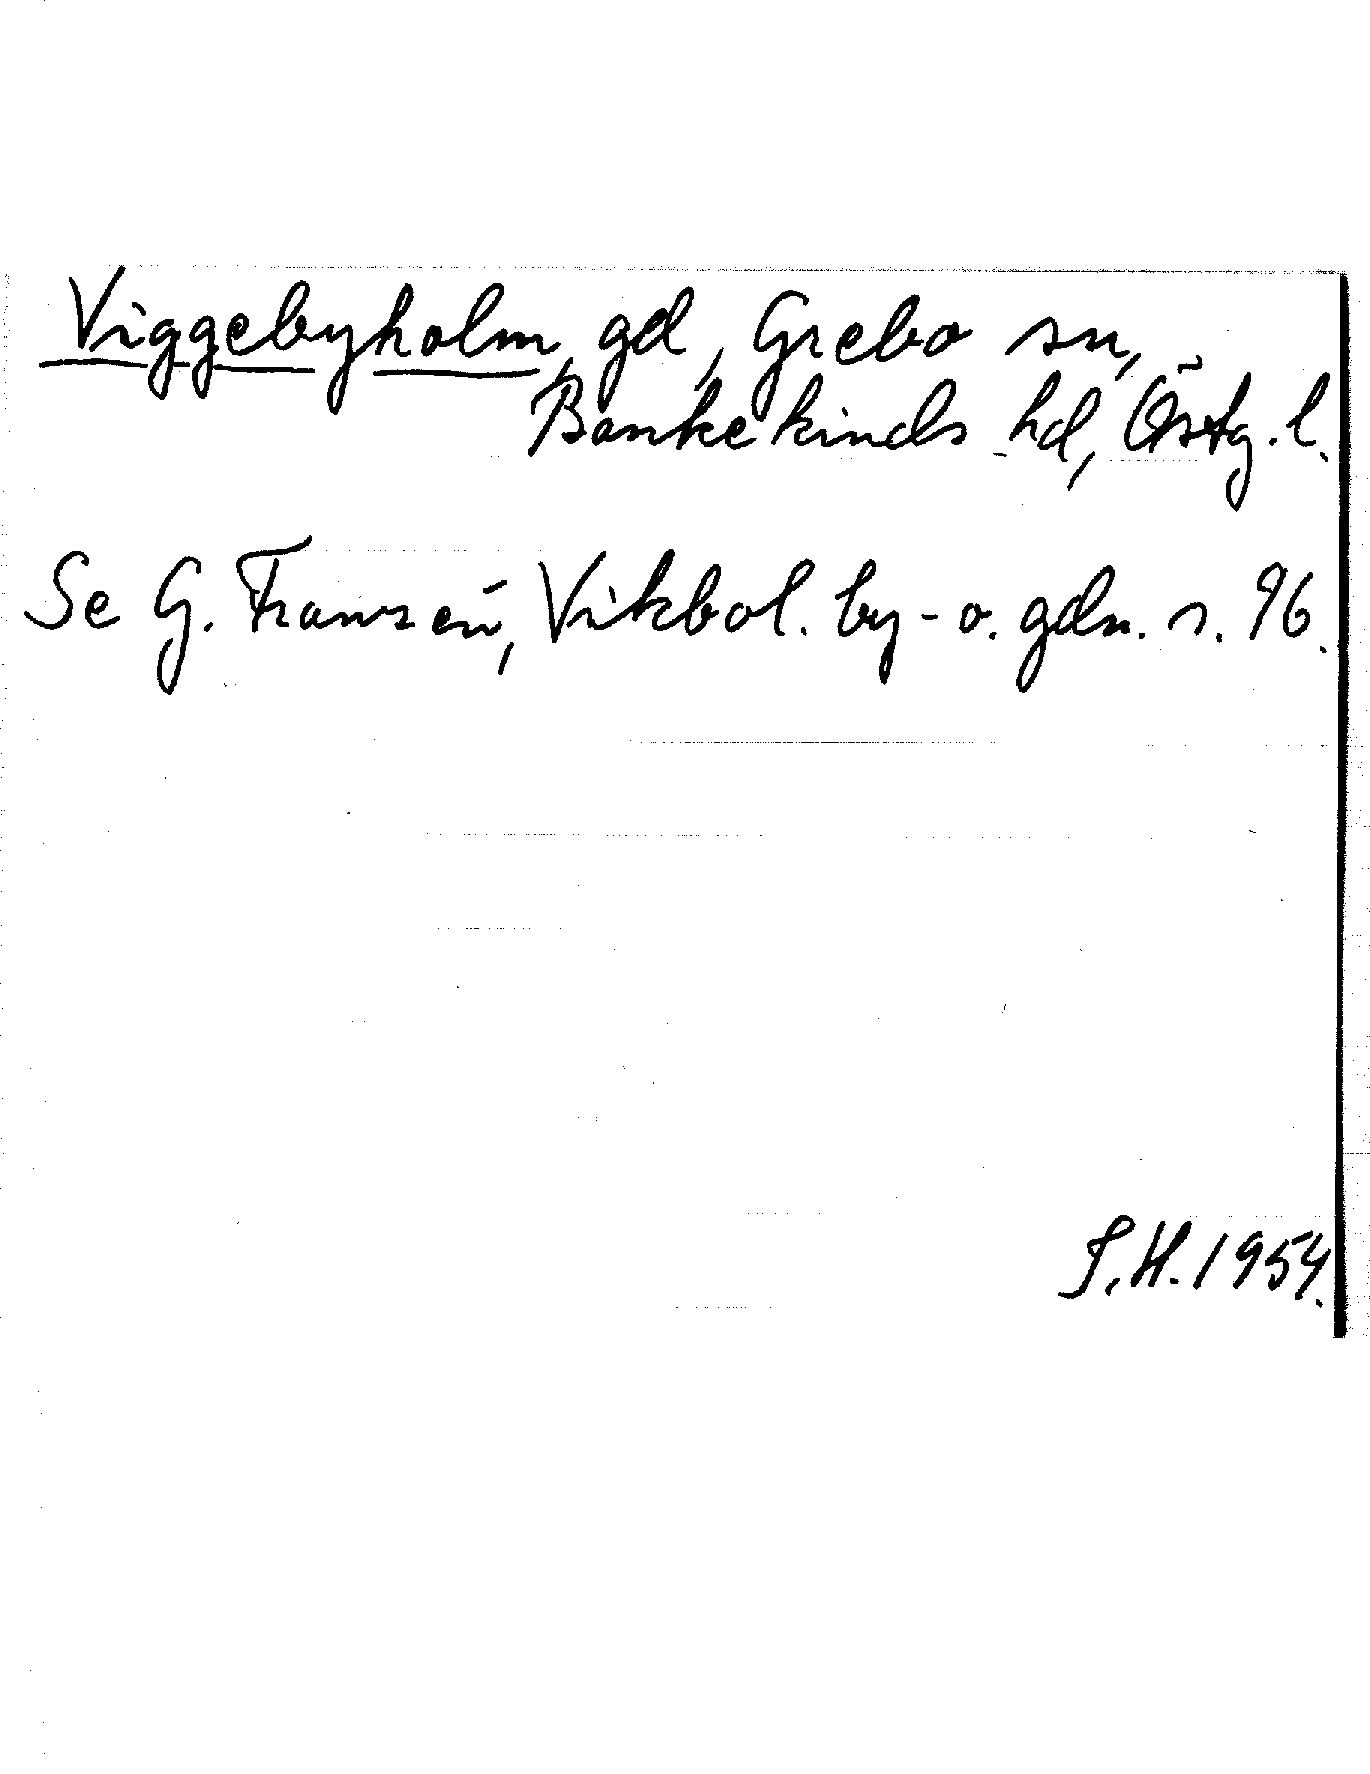 Viggebyholm, gd, Grebo sn,
Bankekinds hd, Östg. l.
Se G. Franzén, Vikbol. by- o. gdn. s. 96.
S.H. 1954.